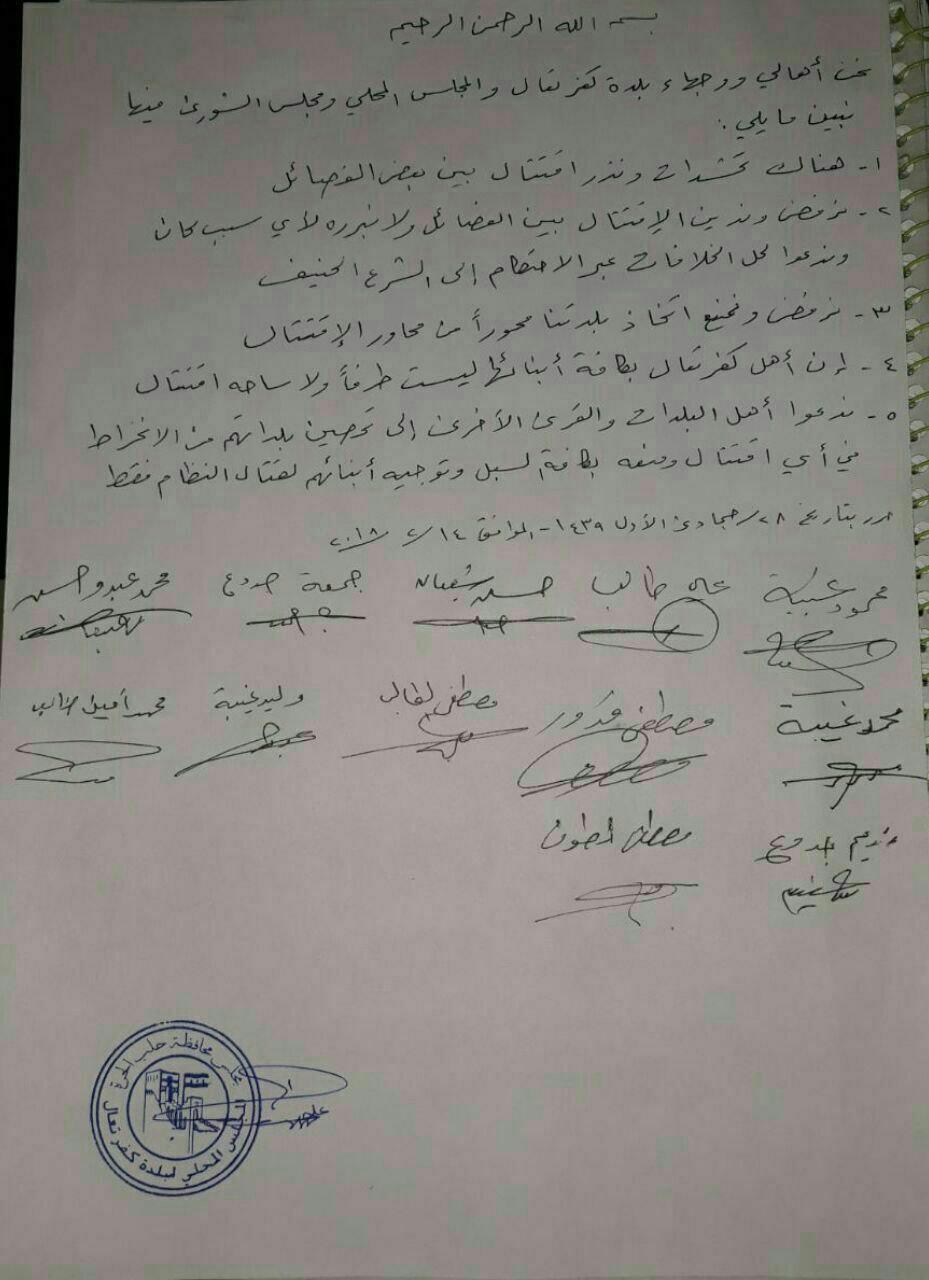 بسم الله الرحمن الرحيم
نحن أهالي ووجهاء بلدة كفرتعال والمجلس المحلي ومجلس الشورى فيها
نبين ما يلي:
١- هناك تحشدات ونذر اقتتال بين بعض الفصائل
٢- نرفض وندين الإقتتال بين الفصائل ولا نبرره لأي سبب كان
وندعوا لحل الخلافات عبر الاحتكام إلى الشرع الحنيف
٣- نرفض ونمنع اتخاذ بلدتنا محوراً من محاور الإقتتال
٤- إن أهل كفرتعال بكافة أبنائها ليست طرفاً ولا ساحه اقتتال
٥- ندعوا أهل البلدات والقرى الأخرى إلى تحصين بلداتهم من الانخراط
في أي اقتتال ومنعه بكافة السبل وتوجيه أبنائهم لقتال النظام فقط
حرر بتاريخ ٢٨/جمادى الأول ١٤٣٩- الموافق ١٤/٢/٢٠١٨
محمود غيبة علي طالب حسين شعبان جمعة جدوع محمد عبدو حسن
محمد غيبة مصطفى قدور مصطفى وليد غيبة محمد أمين طالب
نديم جدوع مصطفى
مجلس محافظة حلب الحرة
المجلس المحلي لبلدة كفر تعال